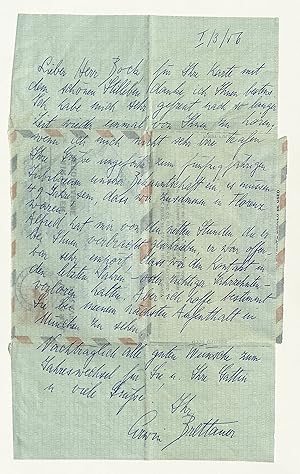 I/3/56
Lieber Herr Koch, für Ihre Karte mit
dem schönen Stilleben danke ich Ihnen bestens
Ich habe mich sehr gefreut nach so langer
Zeit wieder einmal von Ihnen zu hören,
wenn ich mich nicht sehr irre treffen
Ihre Grüße ungefähr zum fünfzig jährigen
Jubiläum unserer Bekanntschaft ein es müssen
49 Jahre sein, dass wir zusammen in Florenz
waren.
Alfred hat mir von den netten Stunden die er
bei Ihnen verbracht geschrieben er war offen-
bar sehr dass wir den Kontakt in
den letzten Jahren oder richtiger Jahrzehnten
verloren hatten. Aber ich hoffe bestimmt
Sie bei meinem nächsten Aufenthalt in
München zu sehen
Nachträglich alle guten Wünsche zum
Jahreswechsel für Sie u. Ihre Gattin
u viele Grüße
Ihr
Erwin Brettauer